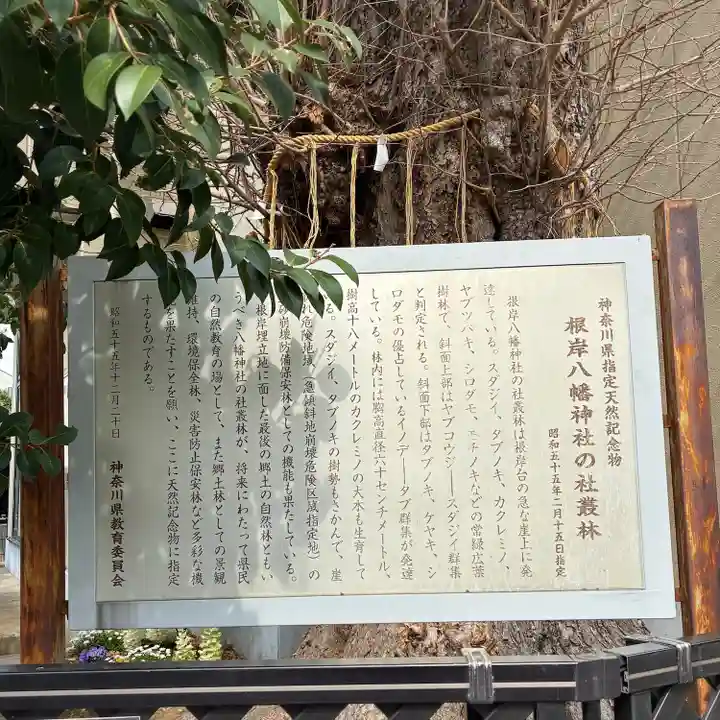 神奈川県指定天然記念物
根岸八幡神社の社叢林
昭和五十五年二月十五日指定
根岸八幡神社の社叢林は根岸台の急な崖上に発
達している。スダジイ、タブノキ、カクレミノ、
ヤブツバキ、シロダモ、モチノキなどの常緑広葉
樹林で、斜面上部はヤブコウジ―スダジイ群集
と判定される。斜面下部はタブノキ、ケヤキ、シ
ロダモの優占しているイノデ―タブ群集が発達
している。林内には胸高直径六十センチメートル、
樹高十八メートルのカクレミノの大木も生育して
る。スダジイ、タブノキの樹勢もさかんで、崖
れ危険地域（急傾斜地崩壊危険区域指定地）の
崩壊防備保安林としての機能も果たしている。
根岸埋立地に面した最後の郷土の自然林ともい
うべき八幡神社の社叢林が、将来にわたって県民
の自然教育の場として、また郷土林としての景観
維持、環境保全林、災害防止保安林など多彩な機
を果たすことを願い、ここに天然記念物に指定
するものである。
昭和五十五年十二月二十日
神奈川県教育委員会